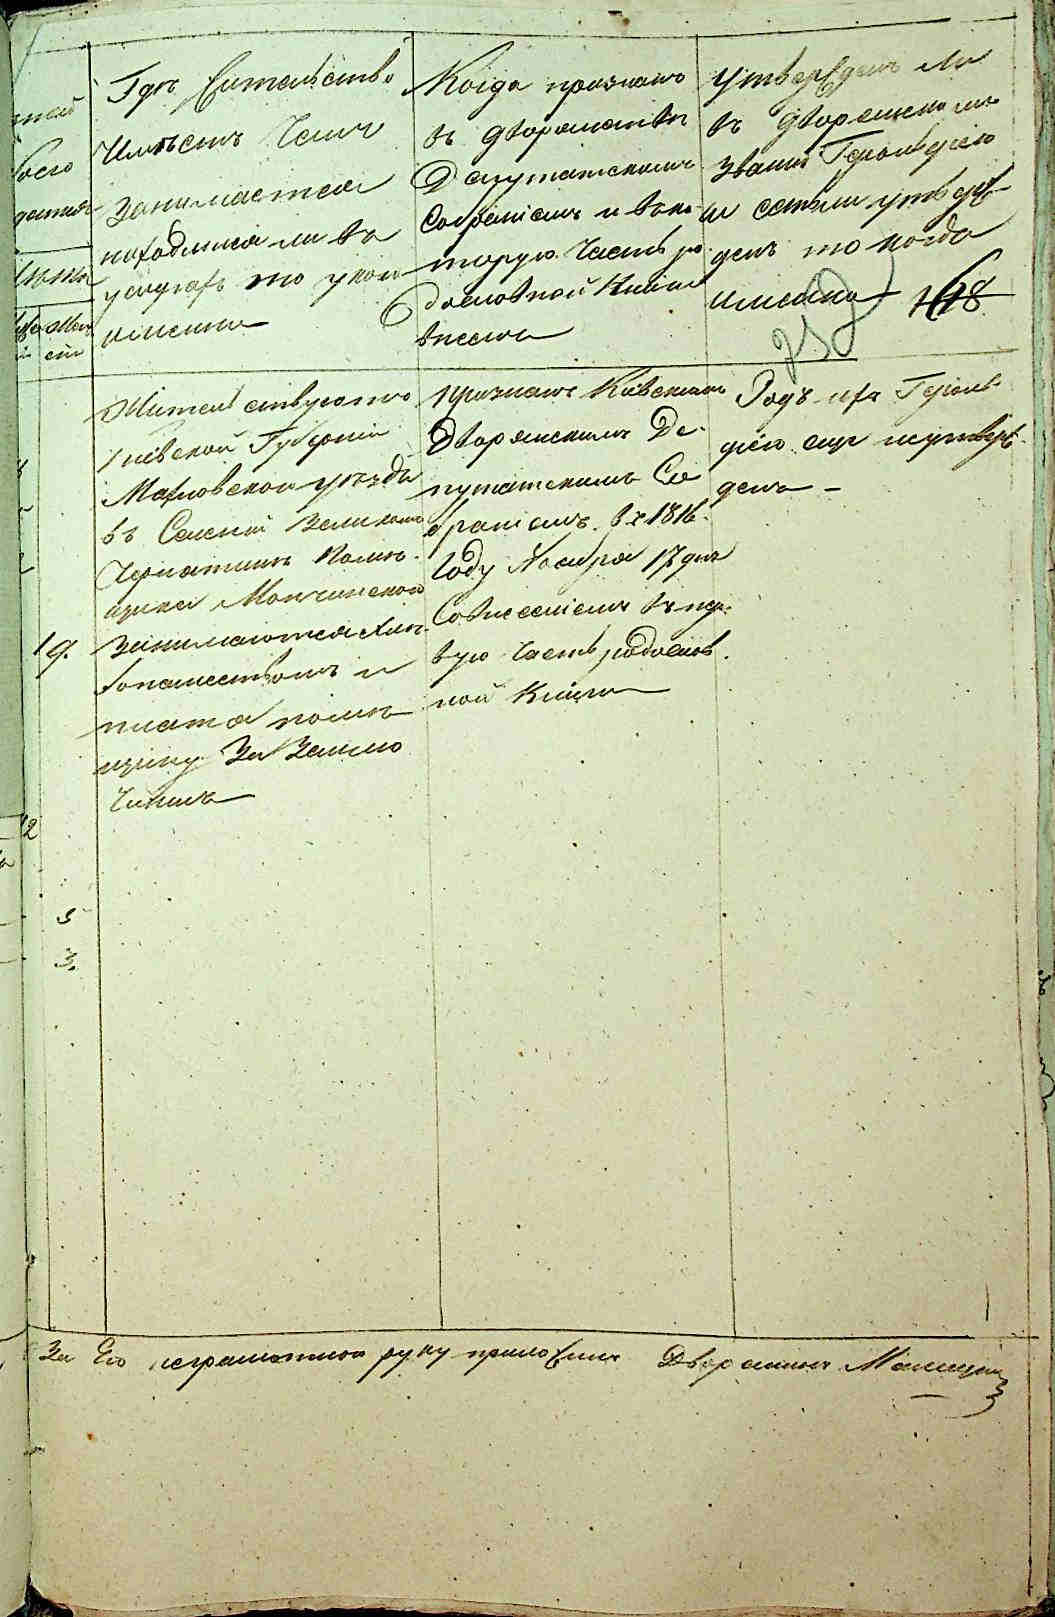 Гдѣ жительство
имѣетъ Чемъ
занимается
находился ли въ
услугахъ то укого
имянно
Когда признанъ
въ дворянствѣ
Депутатскимъ
Собраніемъ и въко-
торую Часть ро
дословной Книги
внесенъ
Утвержденъ ли
въ дворянскомъ
званіи Герольдіею
и естьли утверж-
денъ то когда
имянно
Жительствуютъ
Кіевской Губерніи
Махновскаго уѣзда
въ Селеніи Великомъ
Чернятинѣ помѣ-
щика
Занимаются хлѣ-
бопашествомъ и
платя помѣ
щику За Землю
Чиншъ
признанъ Кіевскимъ
Дворянскимъ Де-
путатскимъ Со
браніемъ въ 1816.
Году Ноября 17 дня
Совнесеніемъ въ пер-
вую Часть родослов
ной Книги
Родъ ихъ Герольд
діею еще неутверж-
денъ -
19.
12
5
3.
За Его неграмотнаго руку приложилъ Дворянинъ